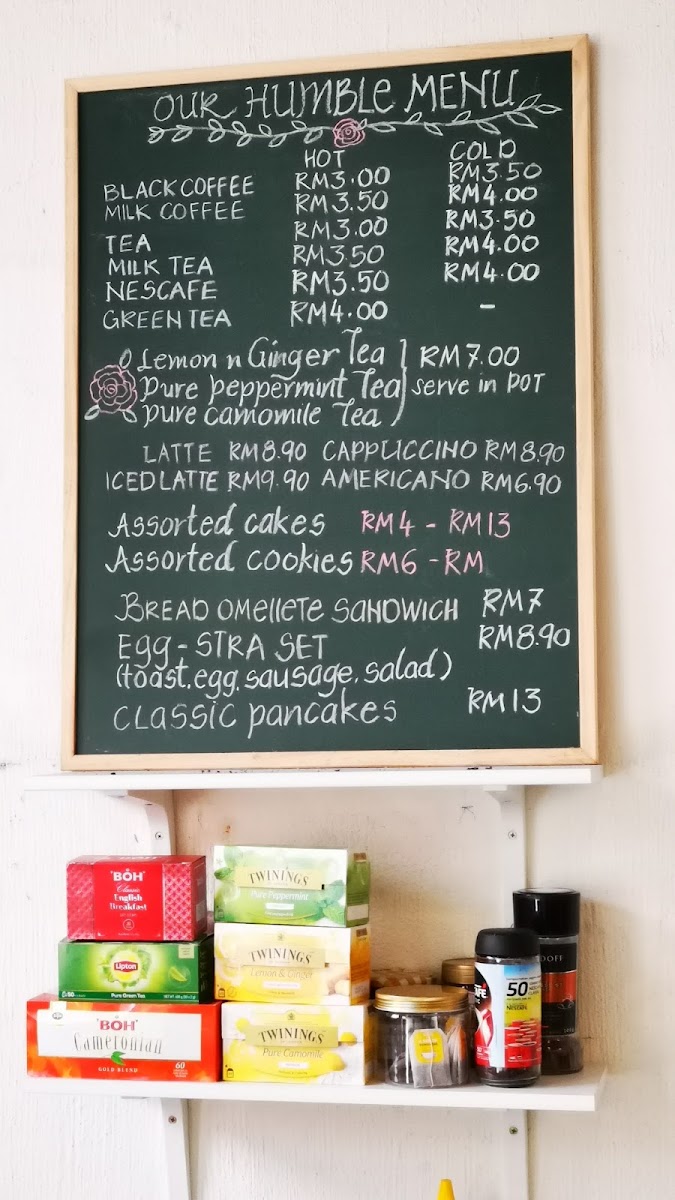 OUR HUMBLE MENU
HOT COLD
BLACK COFFEE RM3.00 RM3.50
MILK COFFEE RM3.50 RM4.00
TEA RM3.00 RM3.50
MILK TEA RM3.50 RM4.00
NESCAFE RM3.50 RM4.00
GREEN TEA RM4.00 -
Lemon n Ginger Tea RM7.00
Pure peppermint Tea serve in POT
pure camomile Tea
LATTE RM8.90 CAPPUCCINO RM8.90
ICED LATTE RM9.90 AMERICANO RM6.90
Assorted cakes RM4 - RM13
Assorted cookies RM6 - RM
BREAD OMELLETE SANDWICH RM7
Egg-STRA SET RM8.90
(toast, egg, sausage, salad)
CLASSIC pancakes RM13
BOH
Classic
English
Breakfast
Lipton
Pure Green Tea
BOH
Cameronian
GOLD BLEND
60
TWININGS
Pure Peppermint
TWININGS
Lemon & Ginger
TWININGS
Pure Camomile
50
DOFF